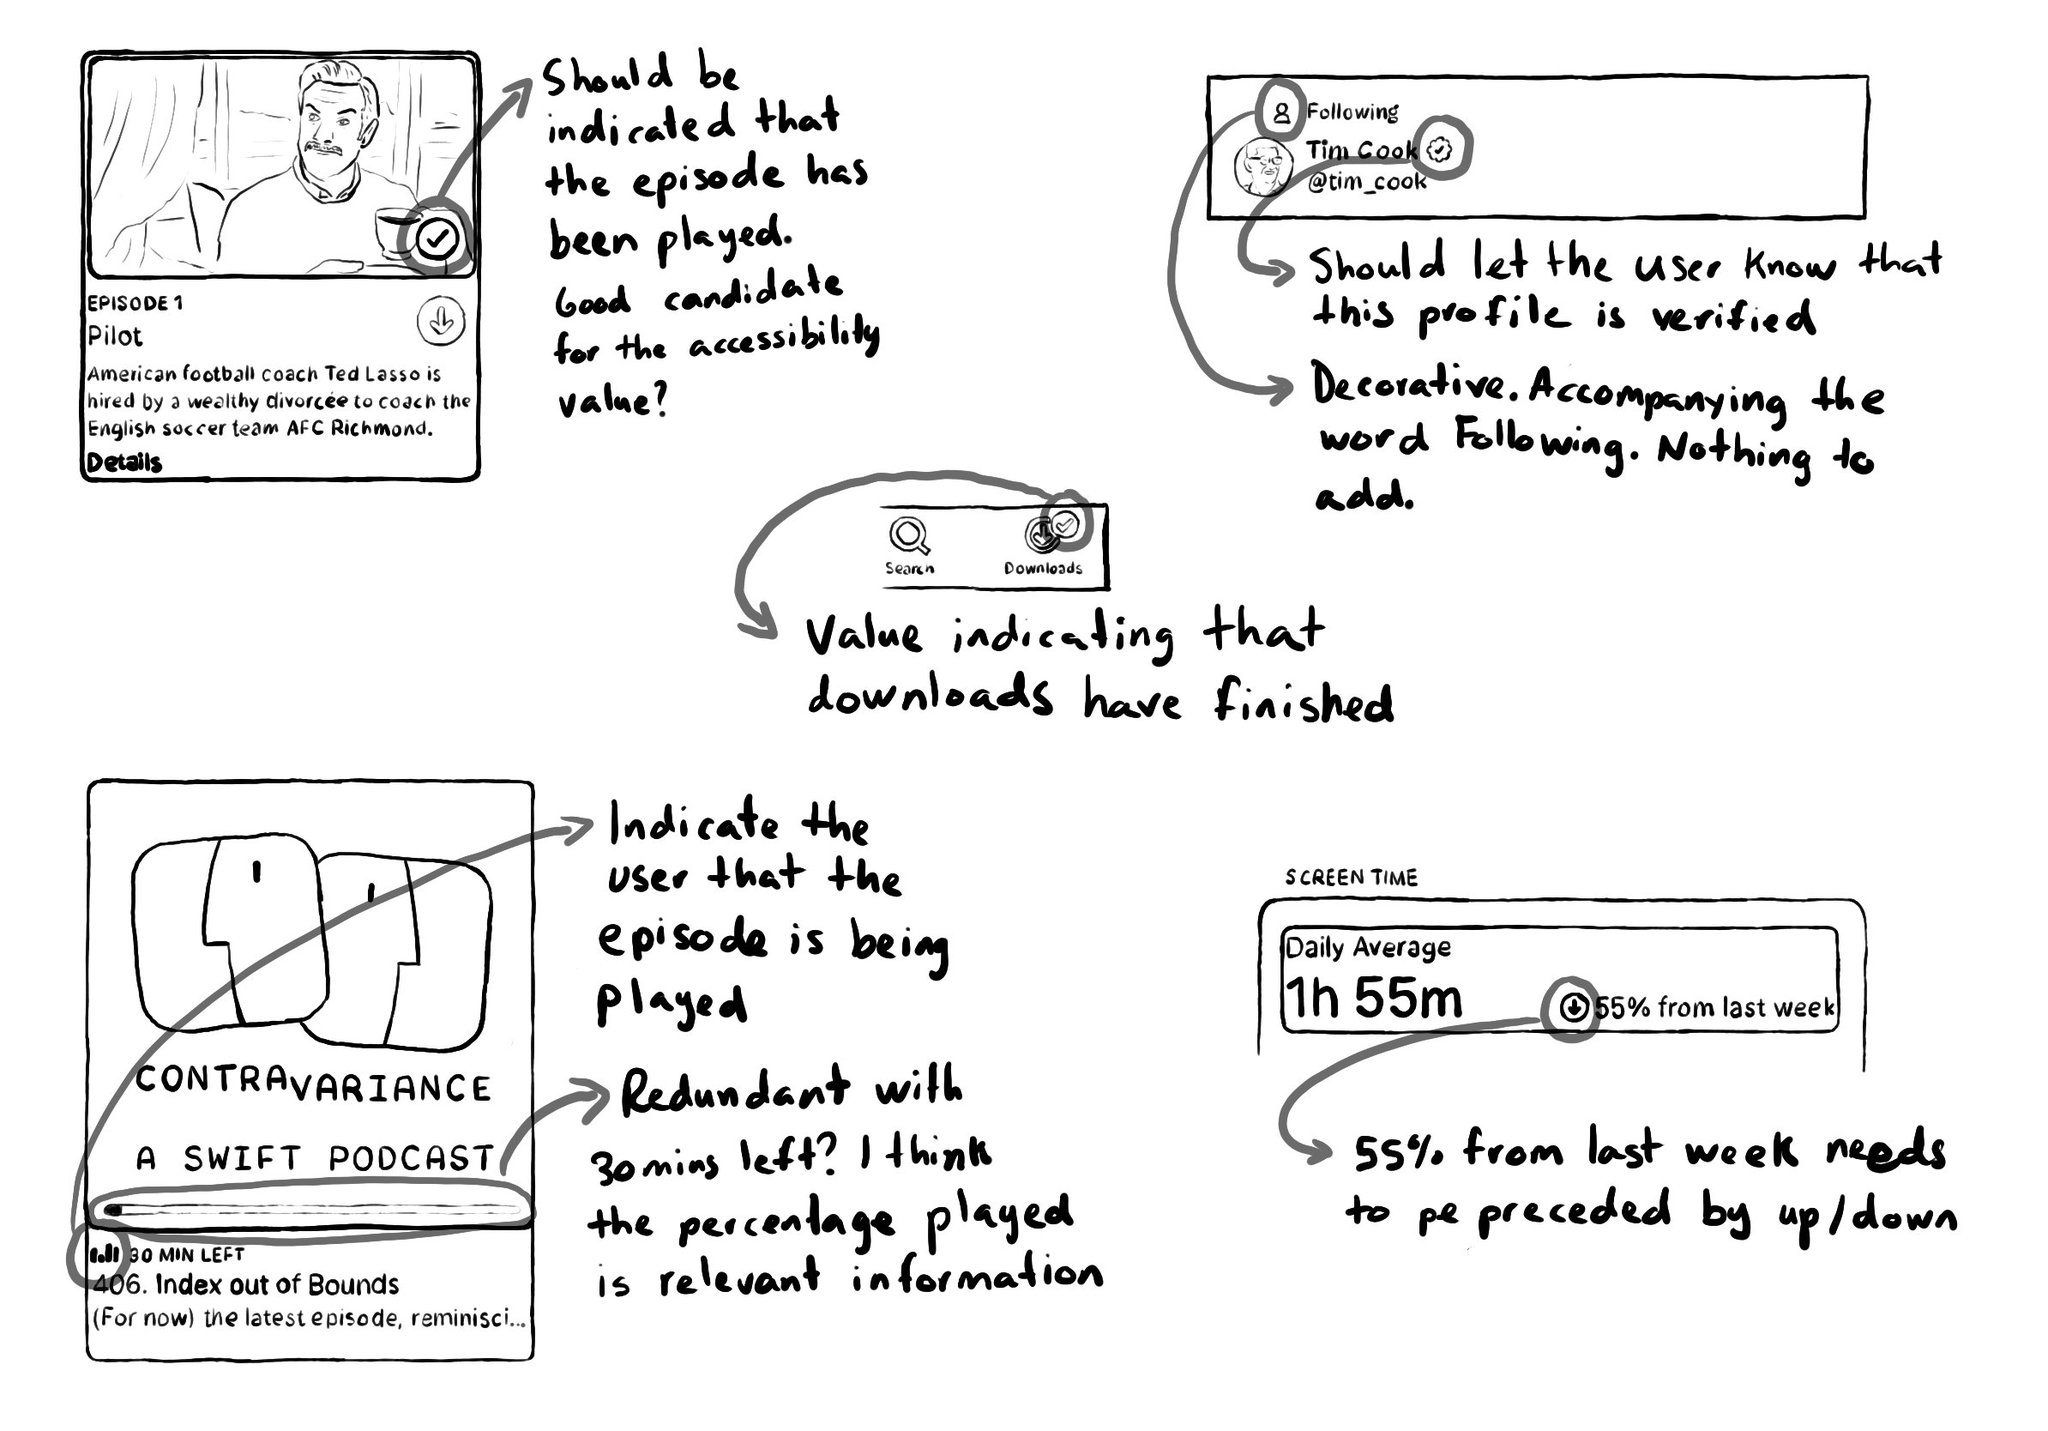 EPISODE 1
Pilot
American football coach Ted Lasso is
hired by a wealthy divorcée to coach the
English soccer team AFC Richmond.
Details
Should be
indicated that
the episode has
been played.
Good candidate
for the accessibility
value?
Following
Tim Cook
@tim_cook
Should let the user know that
this profile is verified
Decorative. Accompanying the
word Following. Nothing to
add.
Search
Downloads
Value indicating that
downloads have finished
CONTRAVARIANCE
A SWIFT PODCAST
30 MIN LEFT
406. Index out of Bounds
(For now) the latest episode, reminisci...
Indicate the
user that the
episode is being
played
Redundant with
30mins left? I think
the percentage played
is relevant information
SCREEN TIME
Daily Average
1h 55m
55% from last week
55% from last week needs
to pe preceded by up/down